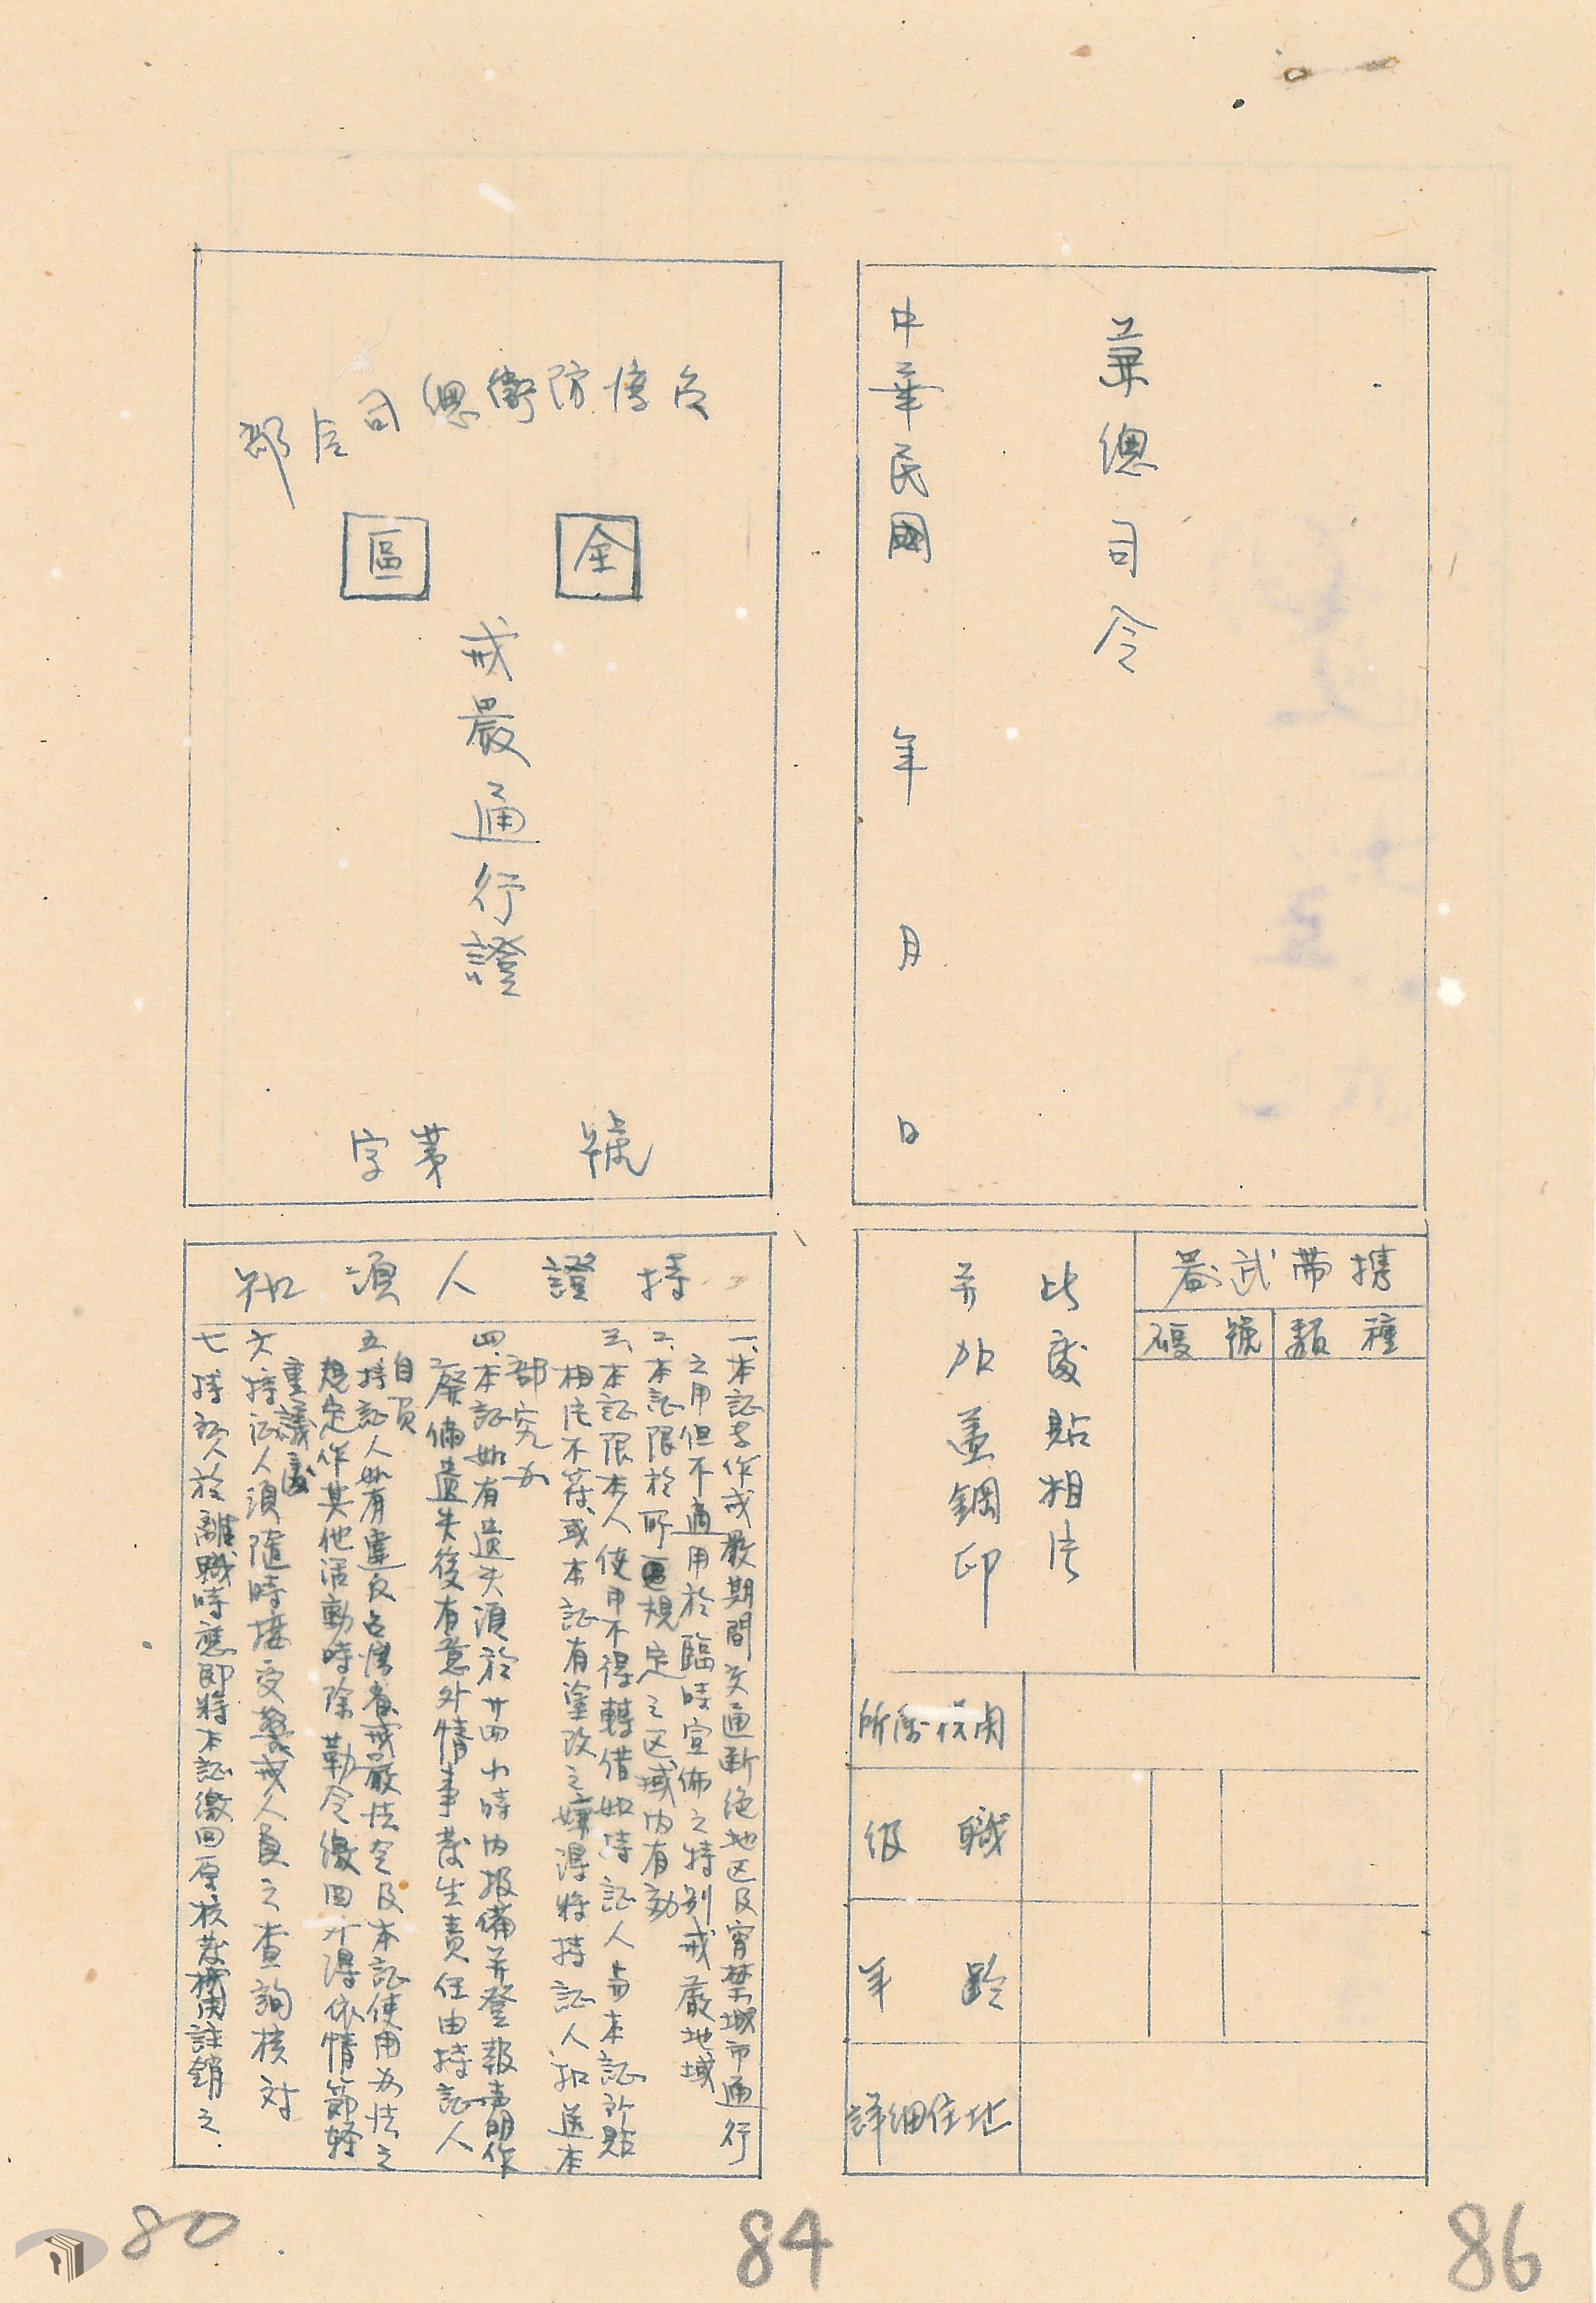 兼總司令
中華民國 年 月 日
台灣防衛總司令部
全 區
戒嚴通行證
字第 號
携帶武器
種類 號碼
此處貼相片
并加蓋鋼印
所屬機關
職 級
年 齡
詳細住址
持證人須知
一、本証專作戒嚴期間交通断绝地区及宵禁城市通行
之用但不適用於臨時宣佈之特別戒嚴地域
二、本証限於所規定之区域内有効
三、本証限本人使用不得轉借如持証人與本証所貼
相片不符或本証有塗改之嫌得將持証人扣送本
部究办
四、本証如有遺失須於廿四小時内报備并登報声明作
廢倘遺失後有意外情事發生責任由持証人
自負
五、持証人如有違反台灣省戒嚴法令及本証使用办法之
規定作其他活動時除勒令繳回外得依情節輕
重議處
六 持証人須隨時接受警戒人員之查詢核对
七 持証人於離職時應即將本証繳回原核發機関註銷之.
80
84
86